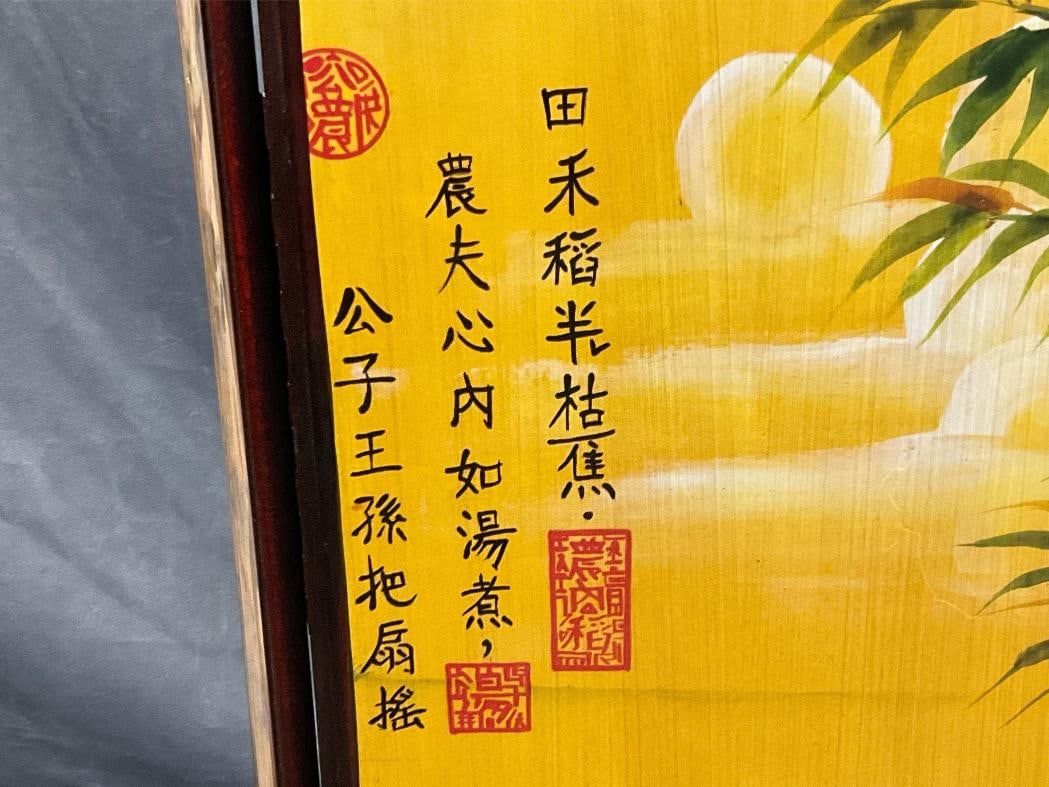 田禾稻半枯焦.
農夫心內如湯煮,
公子王孫把扇搖